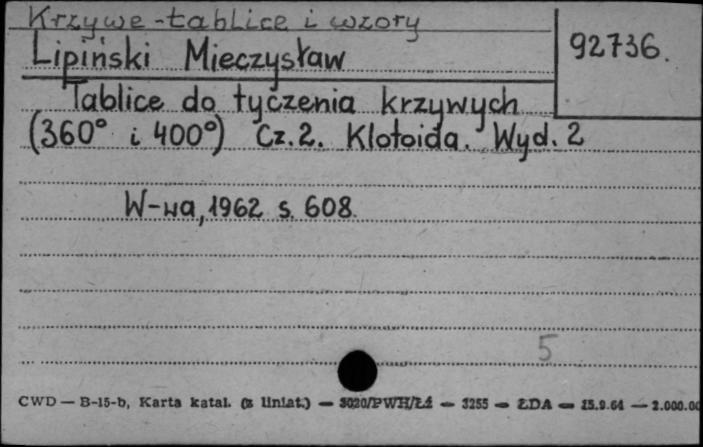 Krzywe - tablice i wzory
92736.
Lipiński Mieczysław
Tablice do tyczenia krzywych
(360° i 400°) Cz. 2. Klotoida. Wyd. 2
W-wa, 1962 s. 608.
5
CWD — B-15-b, Karta katal. (z liniat.) — 3020/PWH/Łź — 3255 — ŁDA — 15.9.61 — 2.000.00